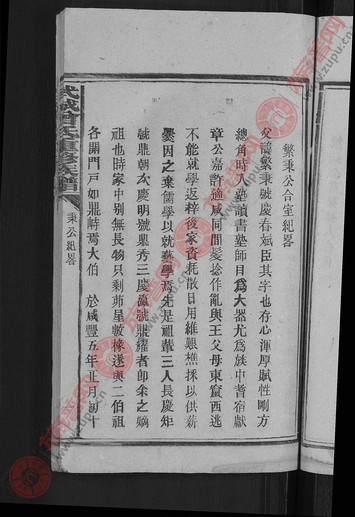 武城曾氏重修族譜
秉公紀畧
繁秉公合室紀畧
父諱繁秉號慶春派臣其字也存心渾厚賦性剛方
總角時入塾讀書塾師目為大器尤為族中耆宿獻
章公嘉許適咸同間髮捻作亂與王父母東竄西逃
不能就學返梓後家資耗散日用維艱樵採以供薪
爨因之棄儒學以就藝學焉先是祖輩三人長慶矩
號鼎朝次慶明號鼎秀三慶瀛號鼎耀者即余之嫡
祖也時家中別無長物只剩茆屋數椽遂與二伯祖
各開門戶如鼎峙焉大伯 於咸豐五年正月初十